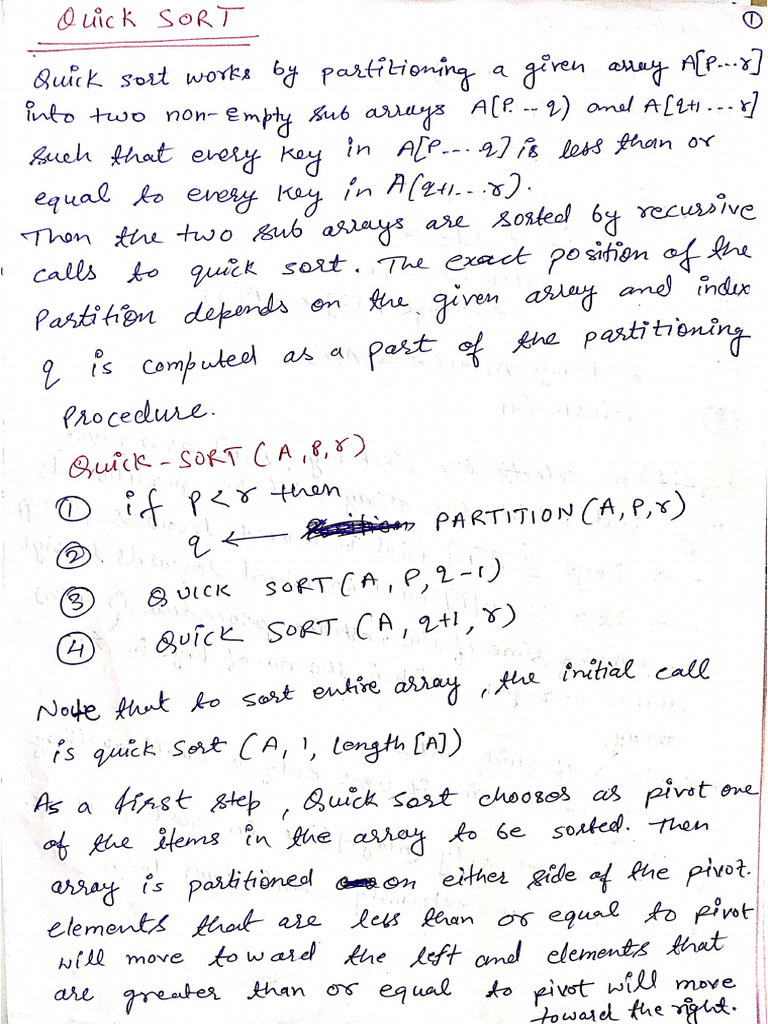 Quick SORT
①
Quick sort works by partitioning a given array A[P...r]
into two non-empty sub arrays A[P...q) and A[q+1...r]
such that every key in A[P....q] is less than or
equal to every key in A(q+1...r).
Then the two sub arrays are sorted by recursive
calls to quick sort. The exact position of the
Partition depends on the given array and index
q is computed as a part of the partitioning
Procedure.
Quick-SORT (A,P,r)
① if P<r then
② q ← PARTITION (A,P,r)
③ QUICK SORT (A, P, q-1)
④ QUICK SORT (A, q+1, r)
Note that to sort entire array, the initial call
is quick sort (A, 1, length[A])
As a first step, Quick sort chooses as pivot one
of the items in the array to be sorted. Then
array is partitioned on either side of the pivot.
elements that are less than or equal to pivot
will move toward the left and elements that
are greater than or equal to pivot will move
toward the right.